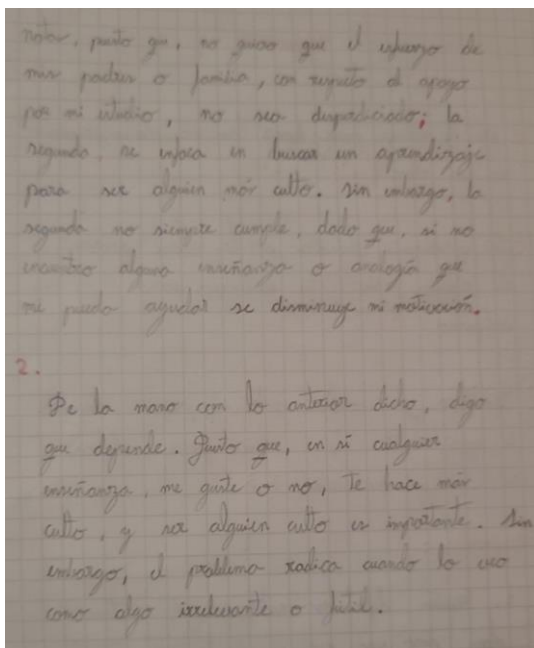 notas, puesto que, no quiero que el esfuerzo de
mis padres o familia, con respecto al apoyo
por mi estudio, no sea desperdiciado; la
segunda, se enfoca en buscar un aprendizaje
para ser alguien más culto. Sin embargo, la
segunda no siempre cumple, dado que, si no
encuentro alguna enseñanza o analogía que
me pueda ayudar se disminuye mi motivación.
2.
De la mano con lo anterior dicho, digo
que depende. Puesto que, en sí cualquier
enseñanza, me guste o no, te hace más
culto, y ser alguien culto es importante. Sin
embargo, el problema radica cuando lo veo
como algo irrelevante o fútil.